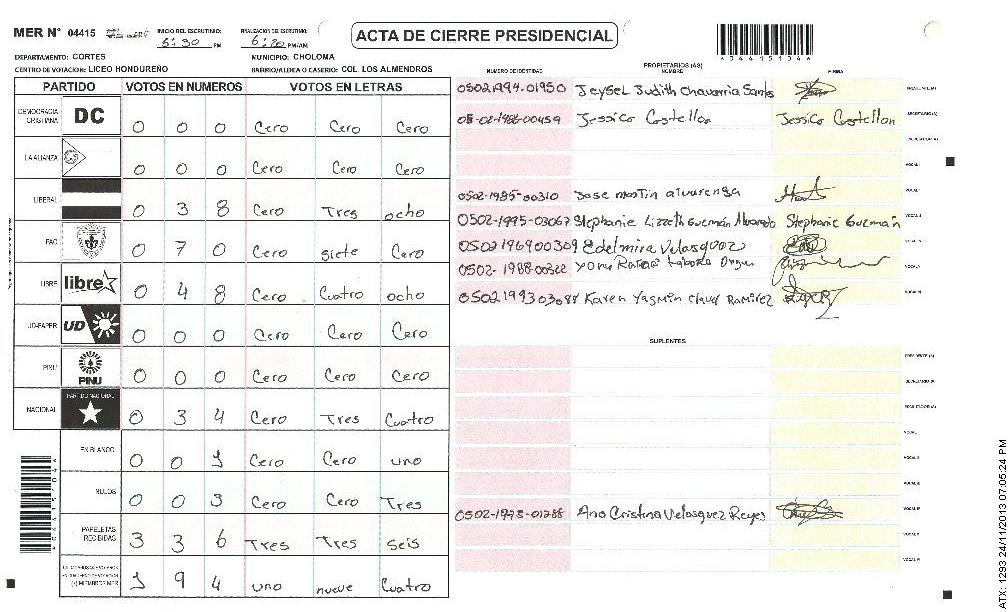 MER N° 04415 INICIO DEL ESCRUTINIO: 5:30 PM FINALIZACION DEL ESCRUTINIO: 6:20 PM/AM
ACTA DE CIERRE PRESIDENCIAL
DEPARTAMENTO: CORTES MUNICIPIO: CHOLOMA
CENTRO DE VOTACION: LICEO HONDUREÑO BARRIO/ALDEA O CASERIO: COL. LOS ALMENDROS
PARTIDO VOTOS EN NUMEROS VOTOS EN LETRAS
DEMOCRACIA CRISTIANA DC 0 0 0 Cero Cero Cero
LA ALIANZA 0 0 0 Cero Cero Cero
LIBERAL 0 3 8 Cero Tres ocho
PAC 0 7 0 Cero siete Cero
LIBRE libre 0 4 8 Cero Cuatro ocho
UD-FAPER UD 0 0 0 Cero Cero Cero
PINU PINU 0 0 0 Cero Cero Cero
NACIONAL PARTIDO NACIONAL 0 3 4 Cero Tres Cuatro
EN BLANCO 0 0 1 Cero Cero uno
NULOS 0 0 3 Cero Cero Tres
PAPELETAS RECIBIDAS 3 3 6 Tres Tres seis
(+) MIEMBROS MER 1 9 4 uno nueve Cuatro
PROPIETARIOS (AS)
NUMERO DE IDENTIDAD NOMBRE FIRMA
0502 1994-01950 Jeysel Judith Chavarria Santos PRESIDENTE (A)
05-02-1988-00459 Jessica Castellon Jessica Castellon SECRETARIO (A)
ESCRUTADOR (A)
VOCAL I
0502-1985-00310 Jose martin alvarenga
0502-1995-03067 Stephanie Lizzeth Guzmán Alvarado Stephanie Guzmán
0502196900309 Edelmira Velasquez
0502-1988-00322
0502199303084 Karen Yasmin Claud Ramirez
SUPLENTES
PRESIDENTE (A)
SECRETARIO (A)
ESCRUTADOR (A)
VOCAL I
VOCAL II
VOCAL III
0502-1973-01288 Ana Cristina Velasquez Reyes VOCAL IV
VOCAL V
VOCAL VI
ATX: 1293 24/11/2013 07:05:24 PM